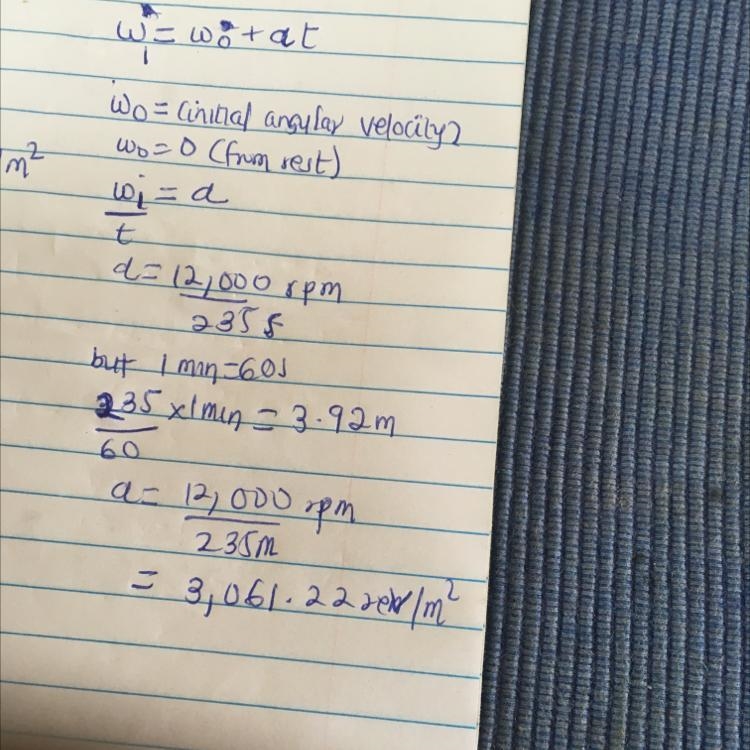 ω₁ = ω₀ + αt
ω₀ = (initial angular velocity)
ω₀ = 0 (from rest)
m²
ω₁ = α
t
α = 12,000 rpm
235 s
but 1 min = 60s
235 x 1 min = 3.92m
60
α = 12,000 rpm
235m
= 3,061.22 rev/m²